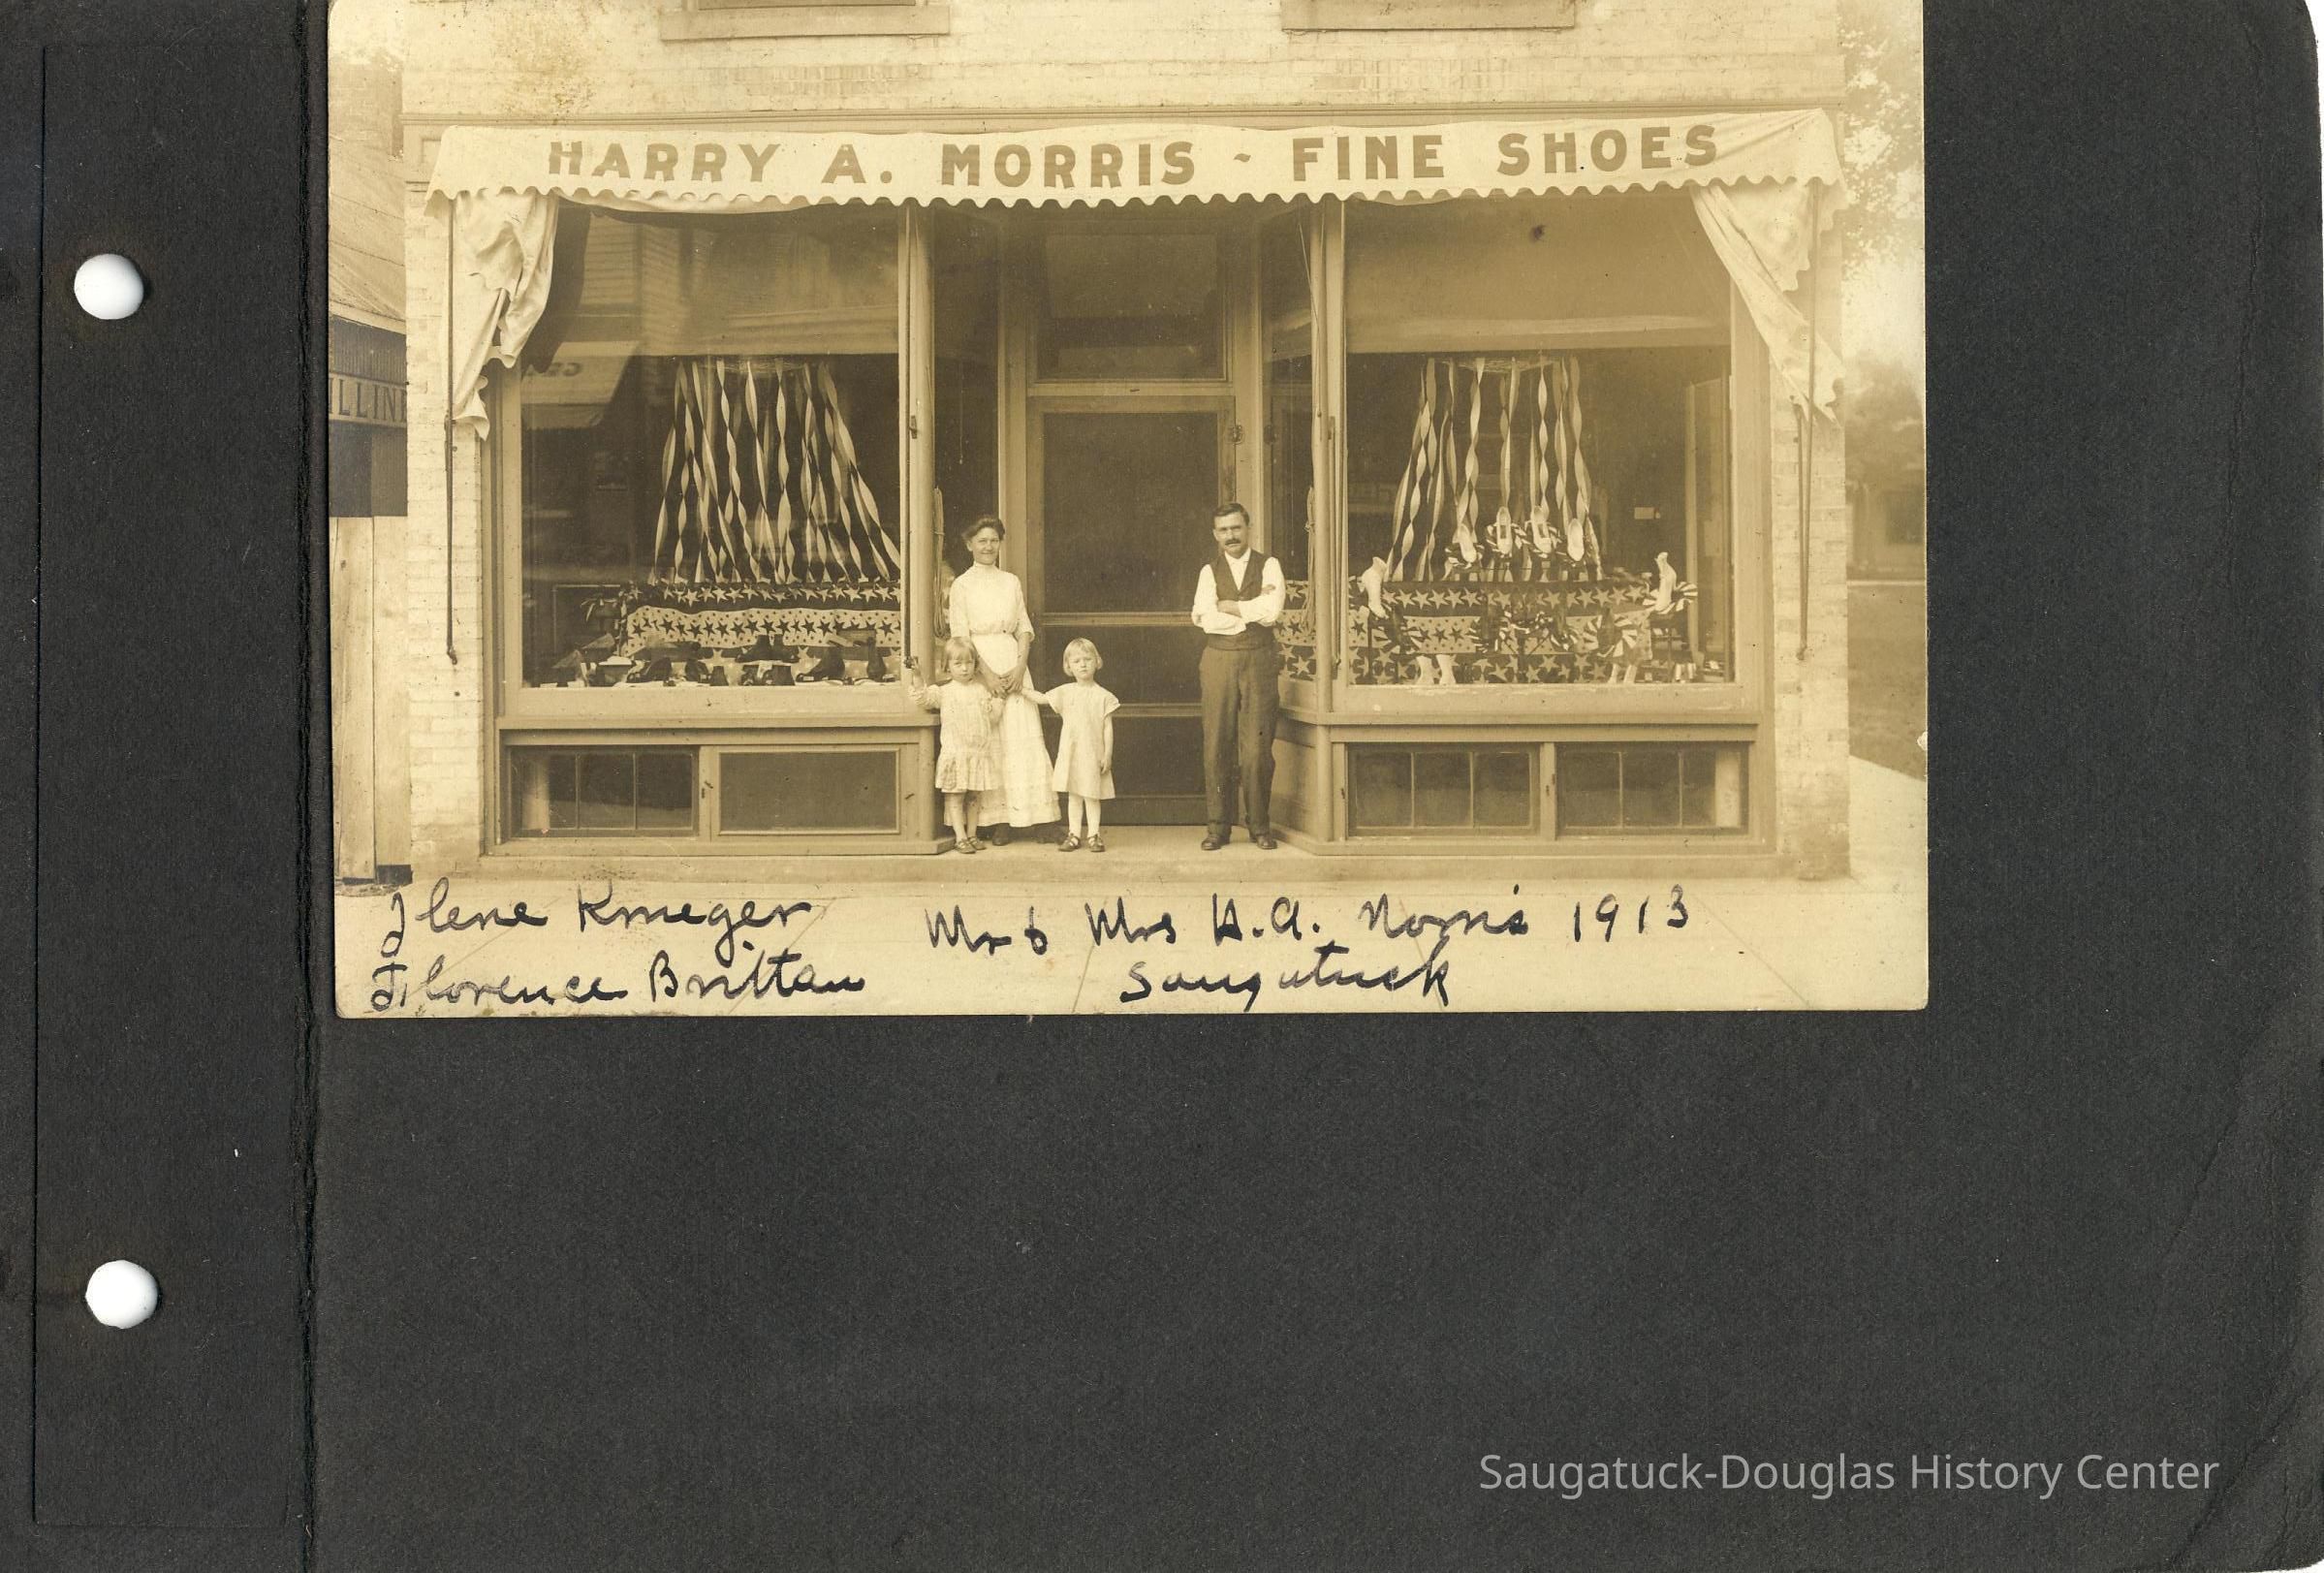 HARRY A. MORRIS - FINE SHOES
LLINE
Ilene Krueger
Florence Brittan
Mr & Mrs H.A. Morris 1913
Saugatuck
Saugatuck-Douglas History Center